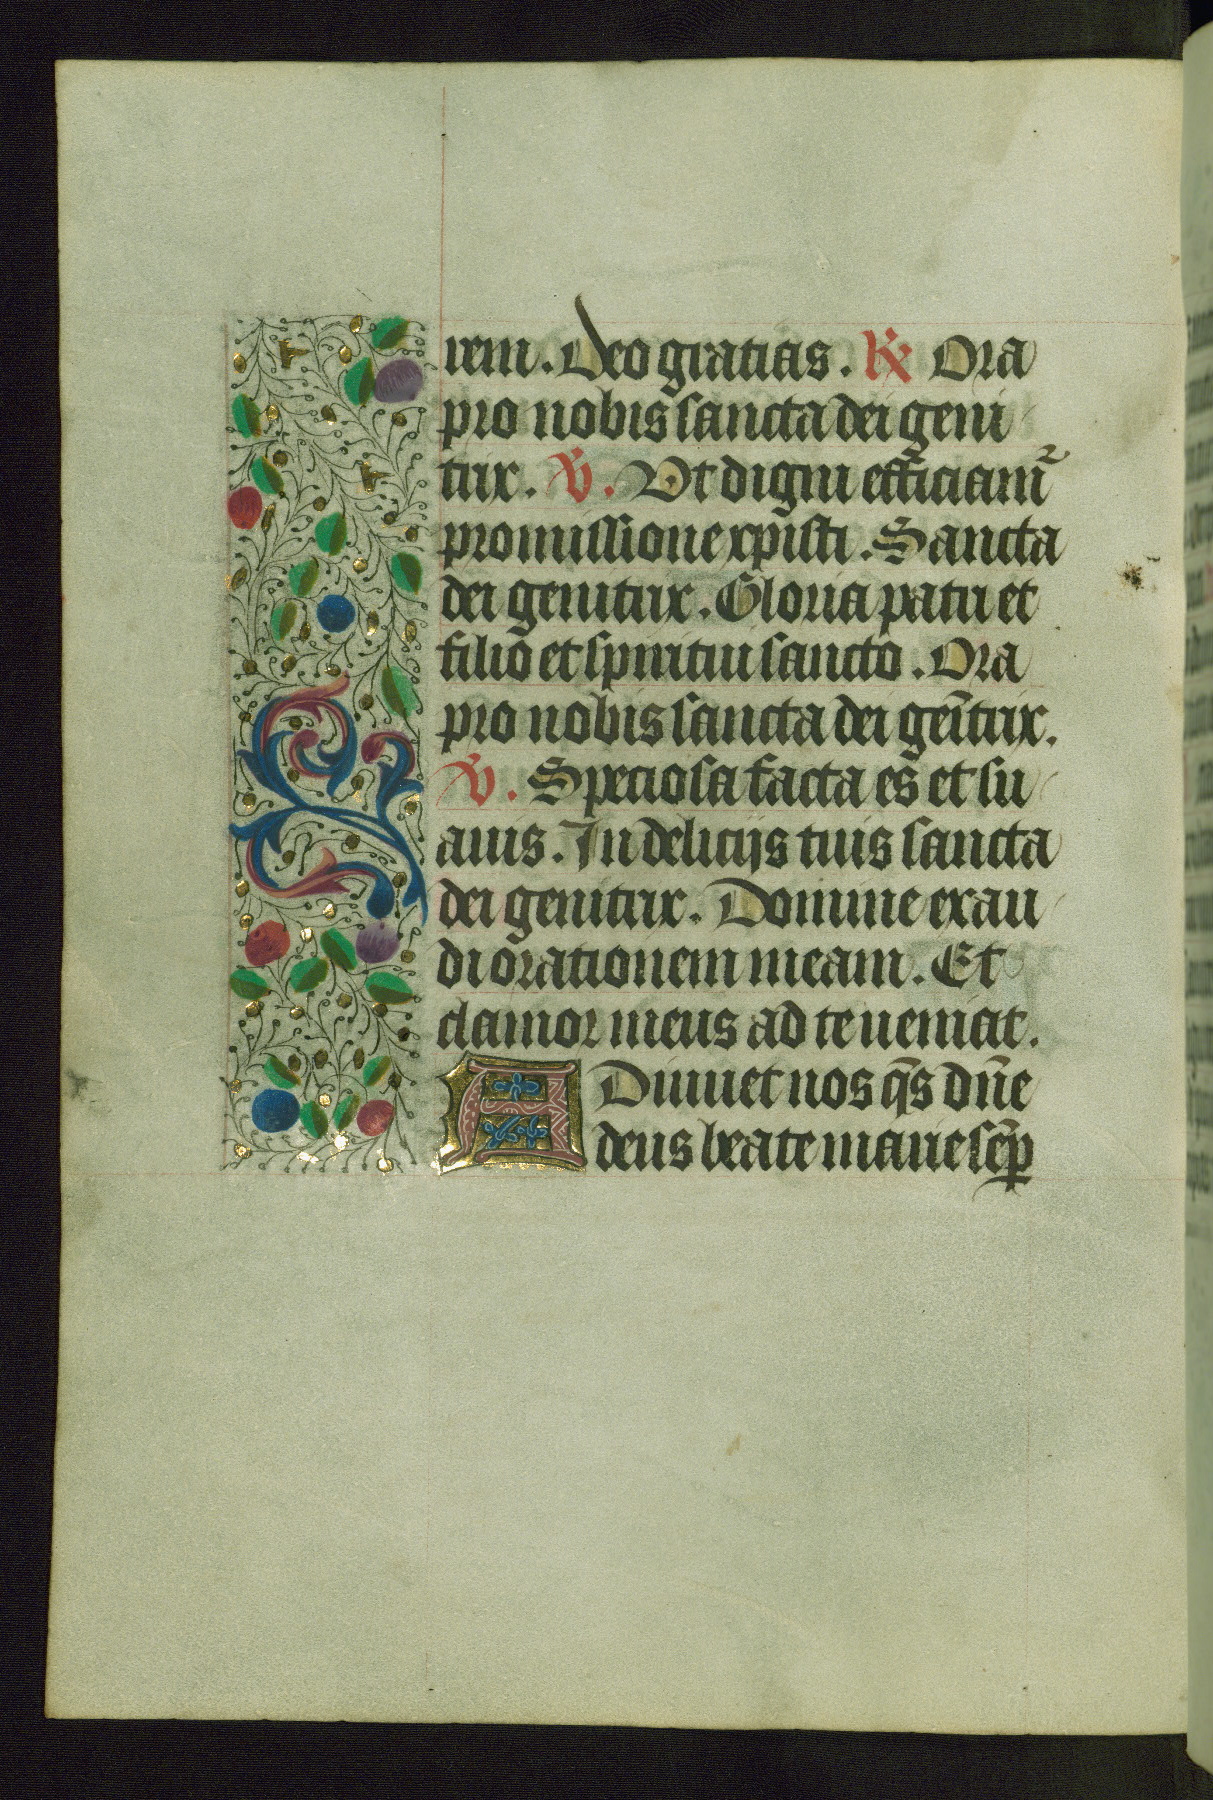 rem. Deo gratias. R Ora
pro nobis sancta dei geni
trix. V. Ut digni efficiam̄
promissione xp̄isti. Sancta
dei genitrix. Gloria patri et
filio et spiritui sancto. Ora
pro nobis sancta dei gēitrix.
V. Speciosa facta es et su
avis. In delicijs tuis sancta
dei genitrix. Domine exau
di orationem meam. Et
clamor meus ad te veniat.
ADiuvet nos q̄s dn̄e
deus beate marie sēp